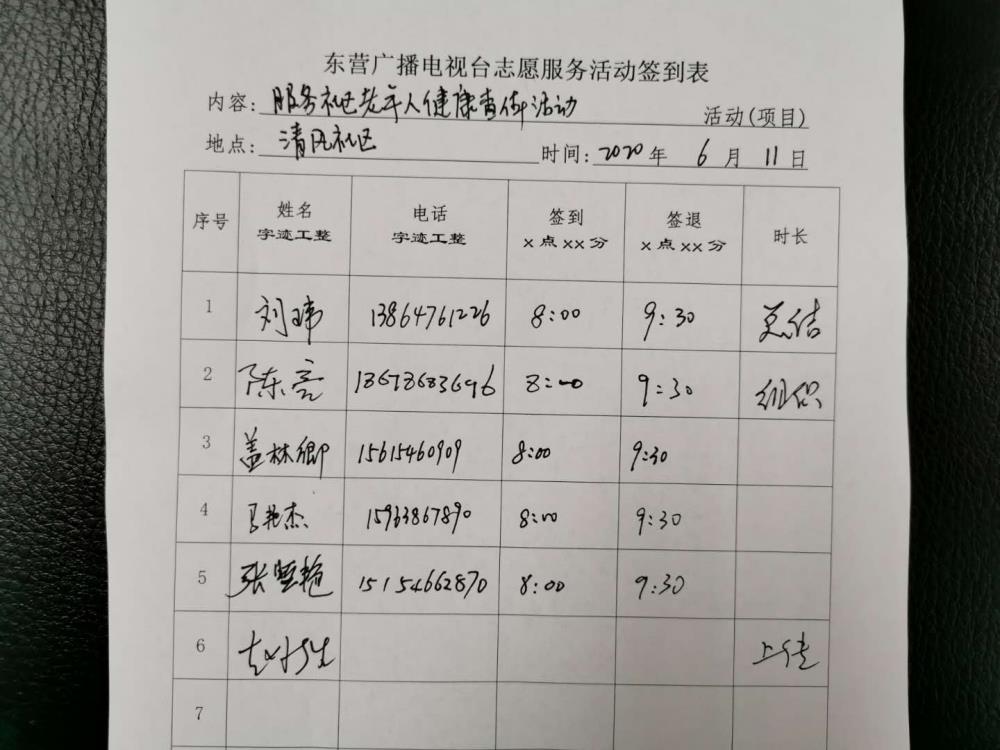 东营广播电视台志愿服务活动签到表
内容: 服务社区老年人健康查体活动 活动(项目)
地点: 清风社区 时间: 2020 年 6 月 11 日
序号 姓名 字迹工整 电话 字迹工整 签到 x 点 xx 分 签退 x 点 xx 分 时长
1 刘玮 13864761226 8:00 9:30 总结
2 陈亮 18678683696 8:00 9:30 组织
3 盖林卿 15615460909 8:00 9:30
4 艳杰 15963867890 8:00 9:30
5 张 艳 15154662870 8:00 9:30
6 赵 上传
7